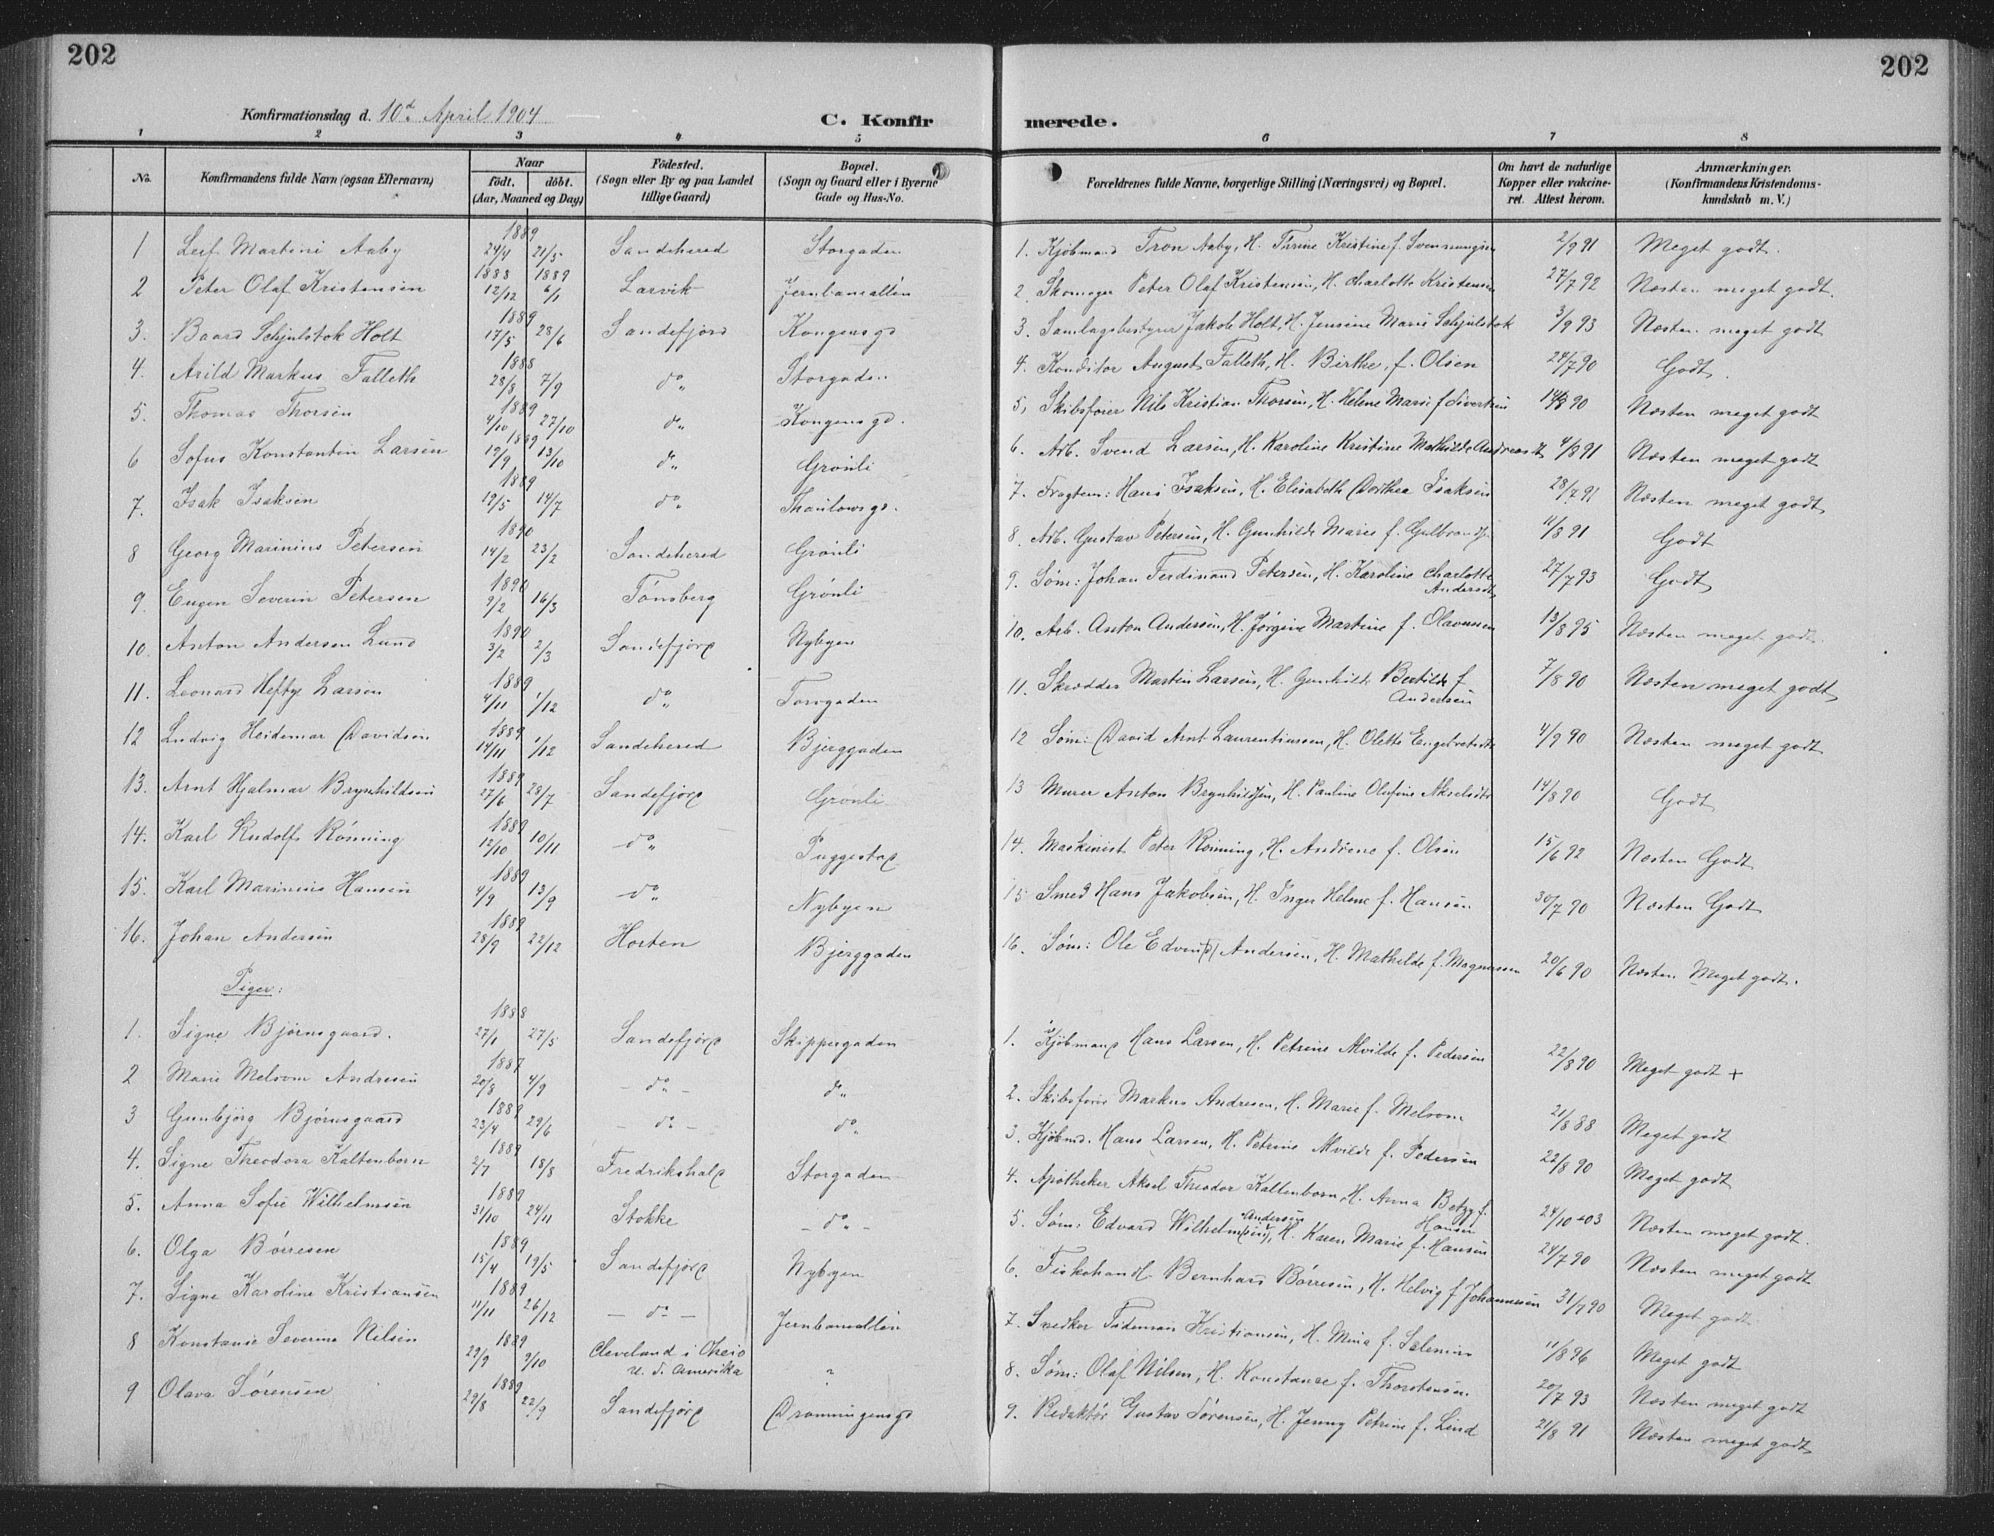 202
202
Konfirmationsdag d. 10d. April 1904
C. Konfirmerede.
1 2 3 4 5 6 7 8
No.
Konfirmandens fulde Navn (ogsaa Efternavn)
Naar
født. døbt.
(Aar, Maaned og Dag)
Fødested.
(Sogn eller By og paa Landet
tillige Gaard)
Bopæl.
(Sogn og Gaard eller i Byerne
Gade og Hus-No.
Forældrenes fulde Navne, borgerlige Stilling (Næringsvei) og Bopæl.
Om havt de naturlige
Kopper eller vakcine-
ret. Attest herom.
Anmærkninger.
(Konfirmandens Kristendoms-
kundskab m. V.)
1 Leif Martini Aaby 1889 24/4 21/5 Sandeherred Storgaden 1. Kjøbmand Tron Aaby, H. Thrine Kristine f. Svenningsen 2/9 91 Meget godt.
2 Peter Olaf Kristensen 1888 12/12 1889 6/1 Larvik Jernbanealléen 2. Skomager Peter Olaf Kristensen, H. Charlotte Kristensen 27/7 92 Næsten meget godt.
3. Baard Schjulstok Holt 1889 17/5 28/6 Sandefjord Kongensgd 3. Samlagsbestyrer Jakob Holt, H. Jensine Marie Schjulstok 3/9 93 Næsten meget godt
4. Arild Markus Falleth 1888 28/8 7/9 do„ Storgaden 4. Konditor August Falleth, H. Birthe, f. Olsen 24/7 90 Godt.
5. Thomas Thorsen 1889 4/10 27/10 do„ Kongensgd. 5, Skibsfører Nils Kristian Thorsen, H. Helene Marie f Sivertsen 14/8 90 Næsten meget godt
6 Sofus Konstantin Larsen 1889 19/9 13/10 do„ Grønli 6. Arb. Svend Larsen, H. Karoline Kristine Mathilde Andreasdt 4/8 91 Næsten meget godt
7. Isak Isaksen 1889 19/5 14/7 do„ Thaulowsgd. 7. Fragtem: Hans Isaksen, H. Elisabeth Dorthea Isaksen 28/7 91 Næsten meget godt
8 Georg Marinius Petersen 1890 14/2 23/2 Sandeherred Grønli 8. Arb. Gustav Petersen, H. Gunhilde Marie f. Gulbrandsen 11/8 91 Godt
9. Eugen Severin Petersen 1890 9/2 16/3 Tønsberg Grønli 9. Søm: Johan Ferdinand Petersen, H. Karoline Charlotte Andersdt 27/7 93 Godt
10. Anton Andersen Lund 1890 3/2 2/3 Sandefjord Nybyen 10. Arb. Anton Andersen, H. Jørgine Martine f. Olavessen 13/8 95 Næsten meget godt.
11. Leonard Heftye Larsen 1889 4/11 1/12 do„ Torvgaden 11. Skrædder Martin Larsen, H. Gunhilde Bertilde f Andersen 7/8 90 Næsten meget godt
12 Ludvig Heidemar Davidsen 1889 14/11 1/12 Sandeherred Bjerggaden 12 Søm: David Arnt Laurentiussen, H. Olette Engebretsdt 4/9 90 Næsten meget godt
13. Arnt Hjalmar Brynhildsen 1889 27/6 28/7 Sandefjord Grønli 13 Murer Anton Brynhildsen, H. Pauline Olufine Akselsdtr 14/8 90 Godt
14. Karl Rudolf Rønning 1889 12/10 10/11 do„ Puggestad 14. Maskinist Peter Rønning, H. Andrene f. Olsen 15/6 92 Næsten Godt
15. Karl Marinius Hansen 1889 4/9 13/9 do„ Nybyen 15 Smed Hans Jakobsen, H. Inger Helene f. Hansen 30/7 90 Næsten Godt
16. Johan Andersen 1889 28/9 22/12 Horten Bjerggaden 16. Søm: Ole Edvard Andersen, H. Mathilde f. Magnussen 20/6 90 Næsten Meget godt.
Piger:
1. Signe Bjørnsgaard. 1888 27/1 27/5 Sandefjord Skippergaden 1. Kjøbmand Hans Larsen, H. Petrine Alvilde f. Pedersen 22/8 90 Meget godt +
2 Marie Melsom Andresen 1887 20/8 4/9 – do – do„ 2. Skibsfører Markus Andresen, H. Marie f. Melsom 21/8 88 Meget godt
3 Gunbjørg Bjørnsgaard 1889 23/4 29/6 – do – do„ 3. Kjøbmd. Hans Larsen, H. Petrine Alvilde f. Pedersen 22/8 90 Meget godt
4. Signe Theodora Kaltenborn 1889 2/7 18/8 Fredrikshald Storgaden 4. Apotheker Aksel Theodor Kaltenborn, H. Anna Betzy f. Hansen 24/10 03 Næsten meget godt.
5. Anna Sofie Wilhelmsen 1889 31/10 24/11 Stokke – do – 5. Søm: Edvard Wilhelm(sen) Andersen, H. Karen Marie f. Hansen 24/7 90 Næsten meget godt
6. Olga Børresen 1889 15/4 19/5 Sandefjord Nybyen 6. Fiskehandl. Bernhard Børresen, H. Helvig f Johannessen 31/7 90 Meget godt
7. Signe Karoline Kristiansen 1889 11/11 26/12 – do – Jernbanealléen 7. Snedker Tideman Kristiansen, H. Mina f. 11/8 96 Meget godt
8 Konstanse Severine Nilsen 1889 29/9 9/10 Cleveland i Oheio U. S. Amerika „ 8. Søm: Olaf Nilsen, H. Konstance f. Thorstensen. 20/7 93 Næsten meget godt
9 Olava Sørensen 1889 29/8 22/9 Sandefjord Dronningensgd 9. Redaktør Gustav Sørensen, H. Jenny Petrine f. Lind 21/8 91 Næsten meget godt